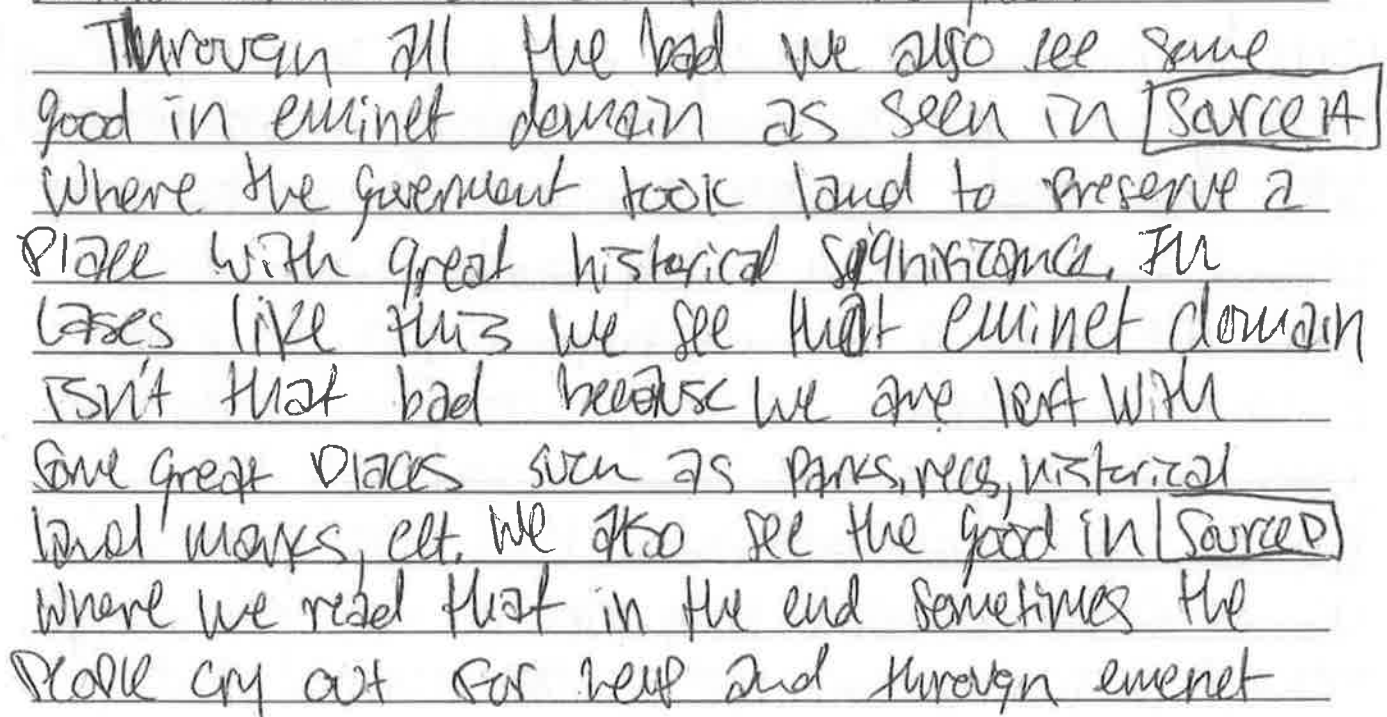 Through all the bad we also see some
good in eminet domain as seen in Source A
Where the government took land to preserve a
Place with great historical significance. In
cases like this we see that eminet domain
isn't that bad because we are left with
some great places such as parks, recs, historical
land marks, ect. We also see the good in Source D
where we read that in the end sometimes the
people cry out for help and through emenet